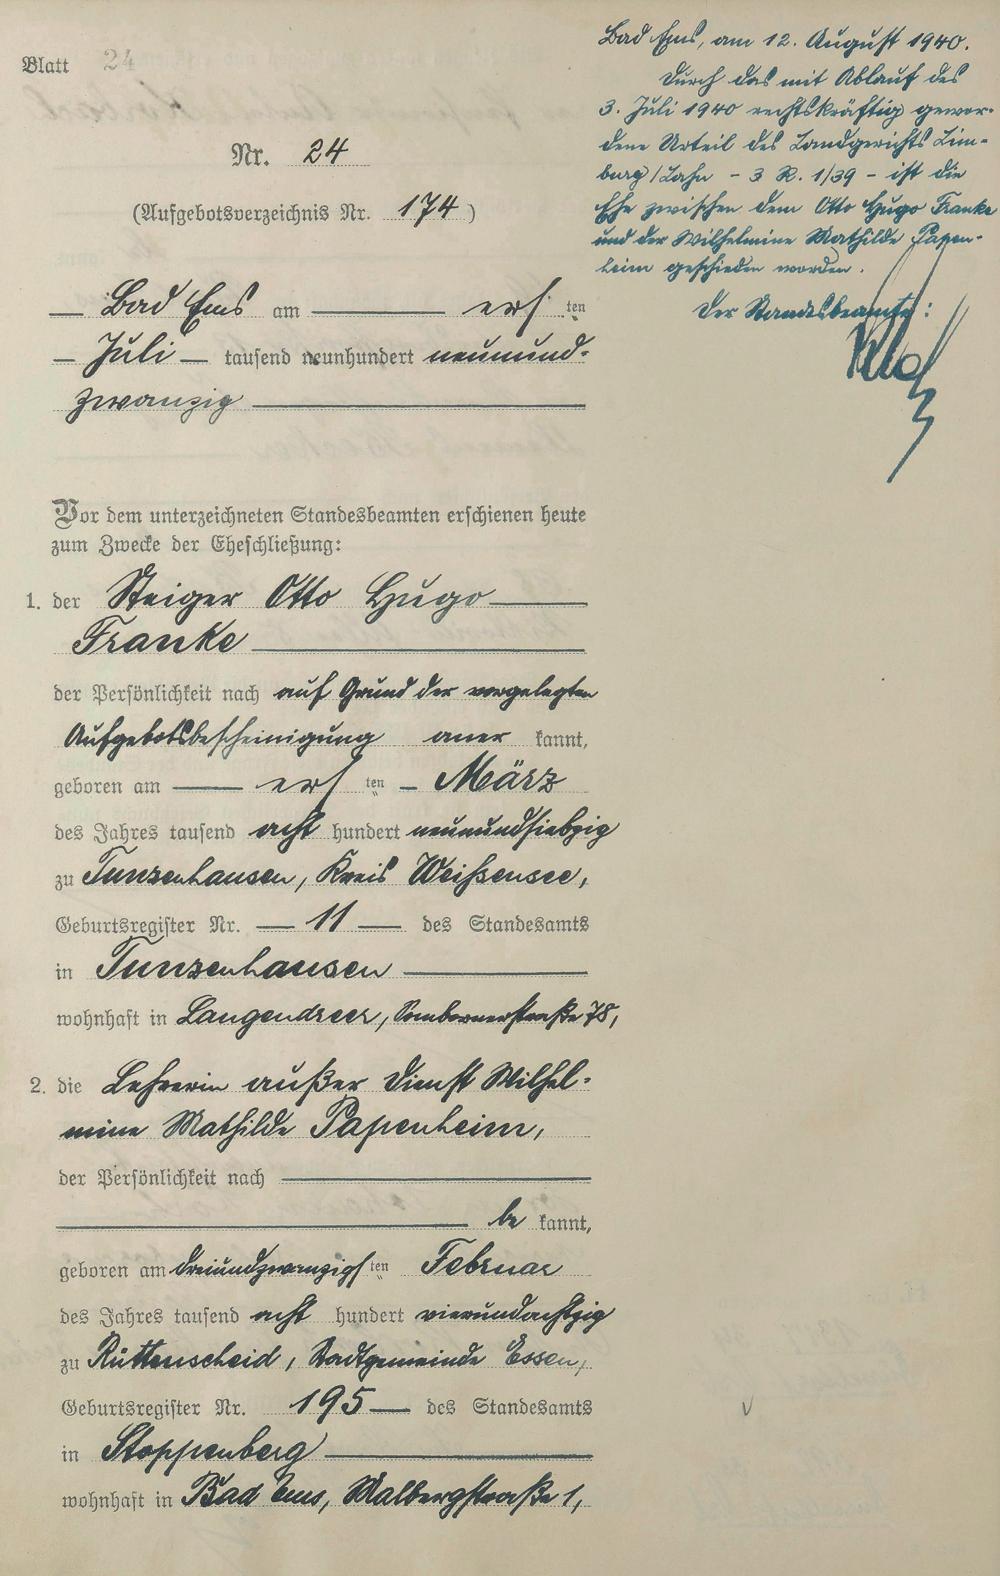 Blatt 24
Nr. 24
(Aufgebotsverzeichnis Nr. 174)
Bad Ems am ersten
Juli tausend neunhundert neunund-
zwanzig
Vor dem unterzeichneten Standesbeamten erschienen heute
zum Zwecke der Eheschließung:
1. der Steiger Otto Hugo
Franke
der Persönlichkeit nach auf Grund der vorgelegten
Aufgebotsbescheinigung aner kannt,
geboren am ersten März
des Jahres tausend acht hundert neunundsiebzig
zu Tunzenhausen, Kreis Weißensee,
Geburtsregister Nr. 11 des Standesamts
in Tunzenhausen
wohnhaft in Langendreer, Sombornerstraße 78,
2. die Lehrerin außer Dienst Wilhel-
mine Mathilde Papenheim,
der Persönlichkeit nach
be kannt,
geboren am dreiundzwanzigsten Februar
des Jahres tausend acht hundert vierundachtzig
zu Rüttenscheid, Stadtgemeinde Essen,
Geburtsregister Nr. 195 des Standesamts
in Stoppenberg
wohnhaft in Bad Ems, Malbergstraße 1,
Bad Ems, am 12. August 1940.
Durch das mit Ablauf des
3. Juli 1940 rechtskräftig gewor-
dene Urteil des Landgerichts Lim-
burg/Lahn - 3 R. 1/39 - ist die
Ehe zwischen dem Otto Hugo Franke
und der Wilhelmine Mathilde Papen-
heim geschieden worden.
Der Standesbeamte: